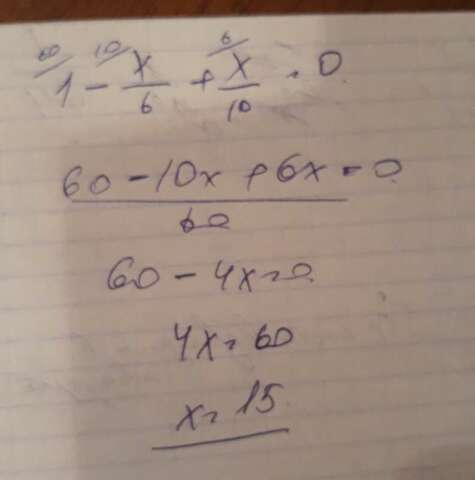 60/ 1 - 10/ x/6 + 6/ x/10 = 0
60 - 10x + 6x = 0
60
60 - 4x = 0
4x = 60
x = 15